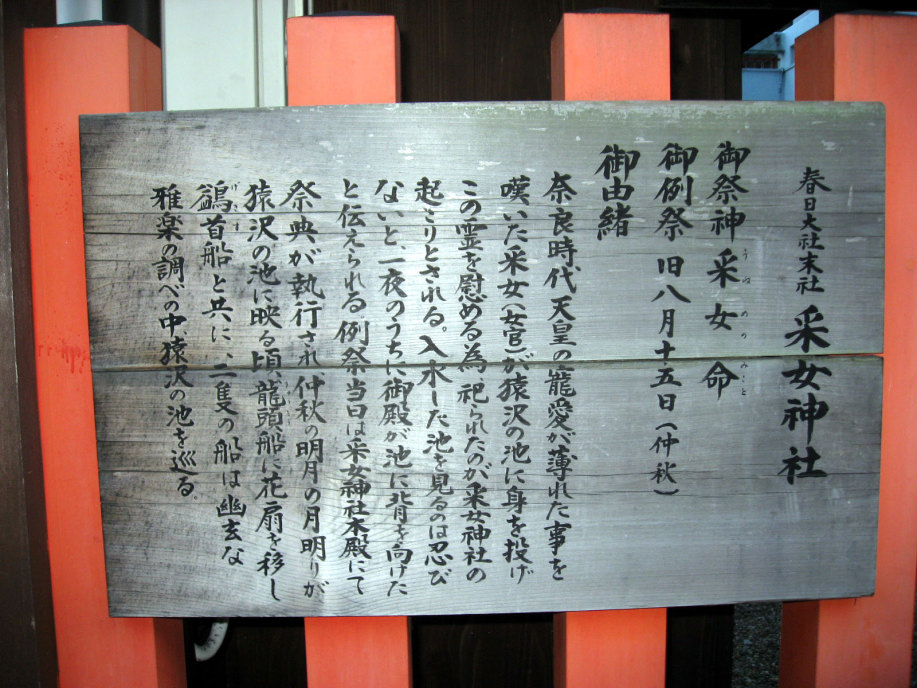 春日大社末社 采女神社
御祭神 采女命
うねめのみこと
御例祭 旧八月十五日(仲秋)
御由緒
奈良時代天皇の寵愛が薄れた事を
嘆いた采女(女官)が猿沢の池に身を投げ
この霊を慰める為祀られたのが采女神社の
起こりとされる。入水した池を見るのは忍び
ないと、一夜のうちに御殿が池に背を向けた
と伝えられる。例祭当日は采女神社本殿にて
祭典が執行され仲秋の明月の月明りが
猿沢の池に映る頃龍頭船に花扇を移し
鷁首船と共に、二隻の船は幽玄な
雅楽の調べの中、猿沢の池を巡る。